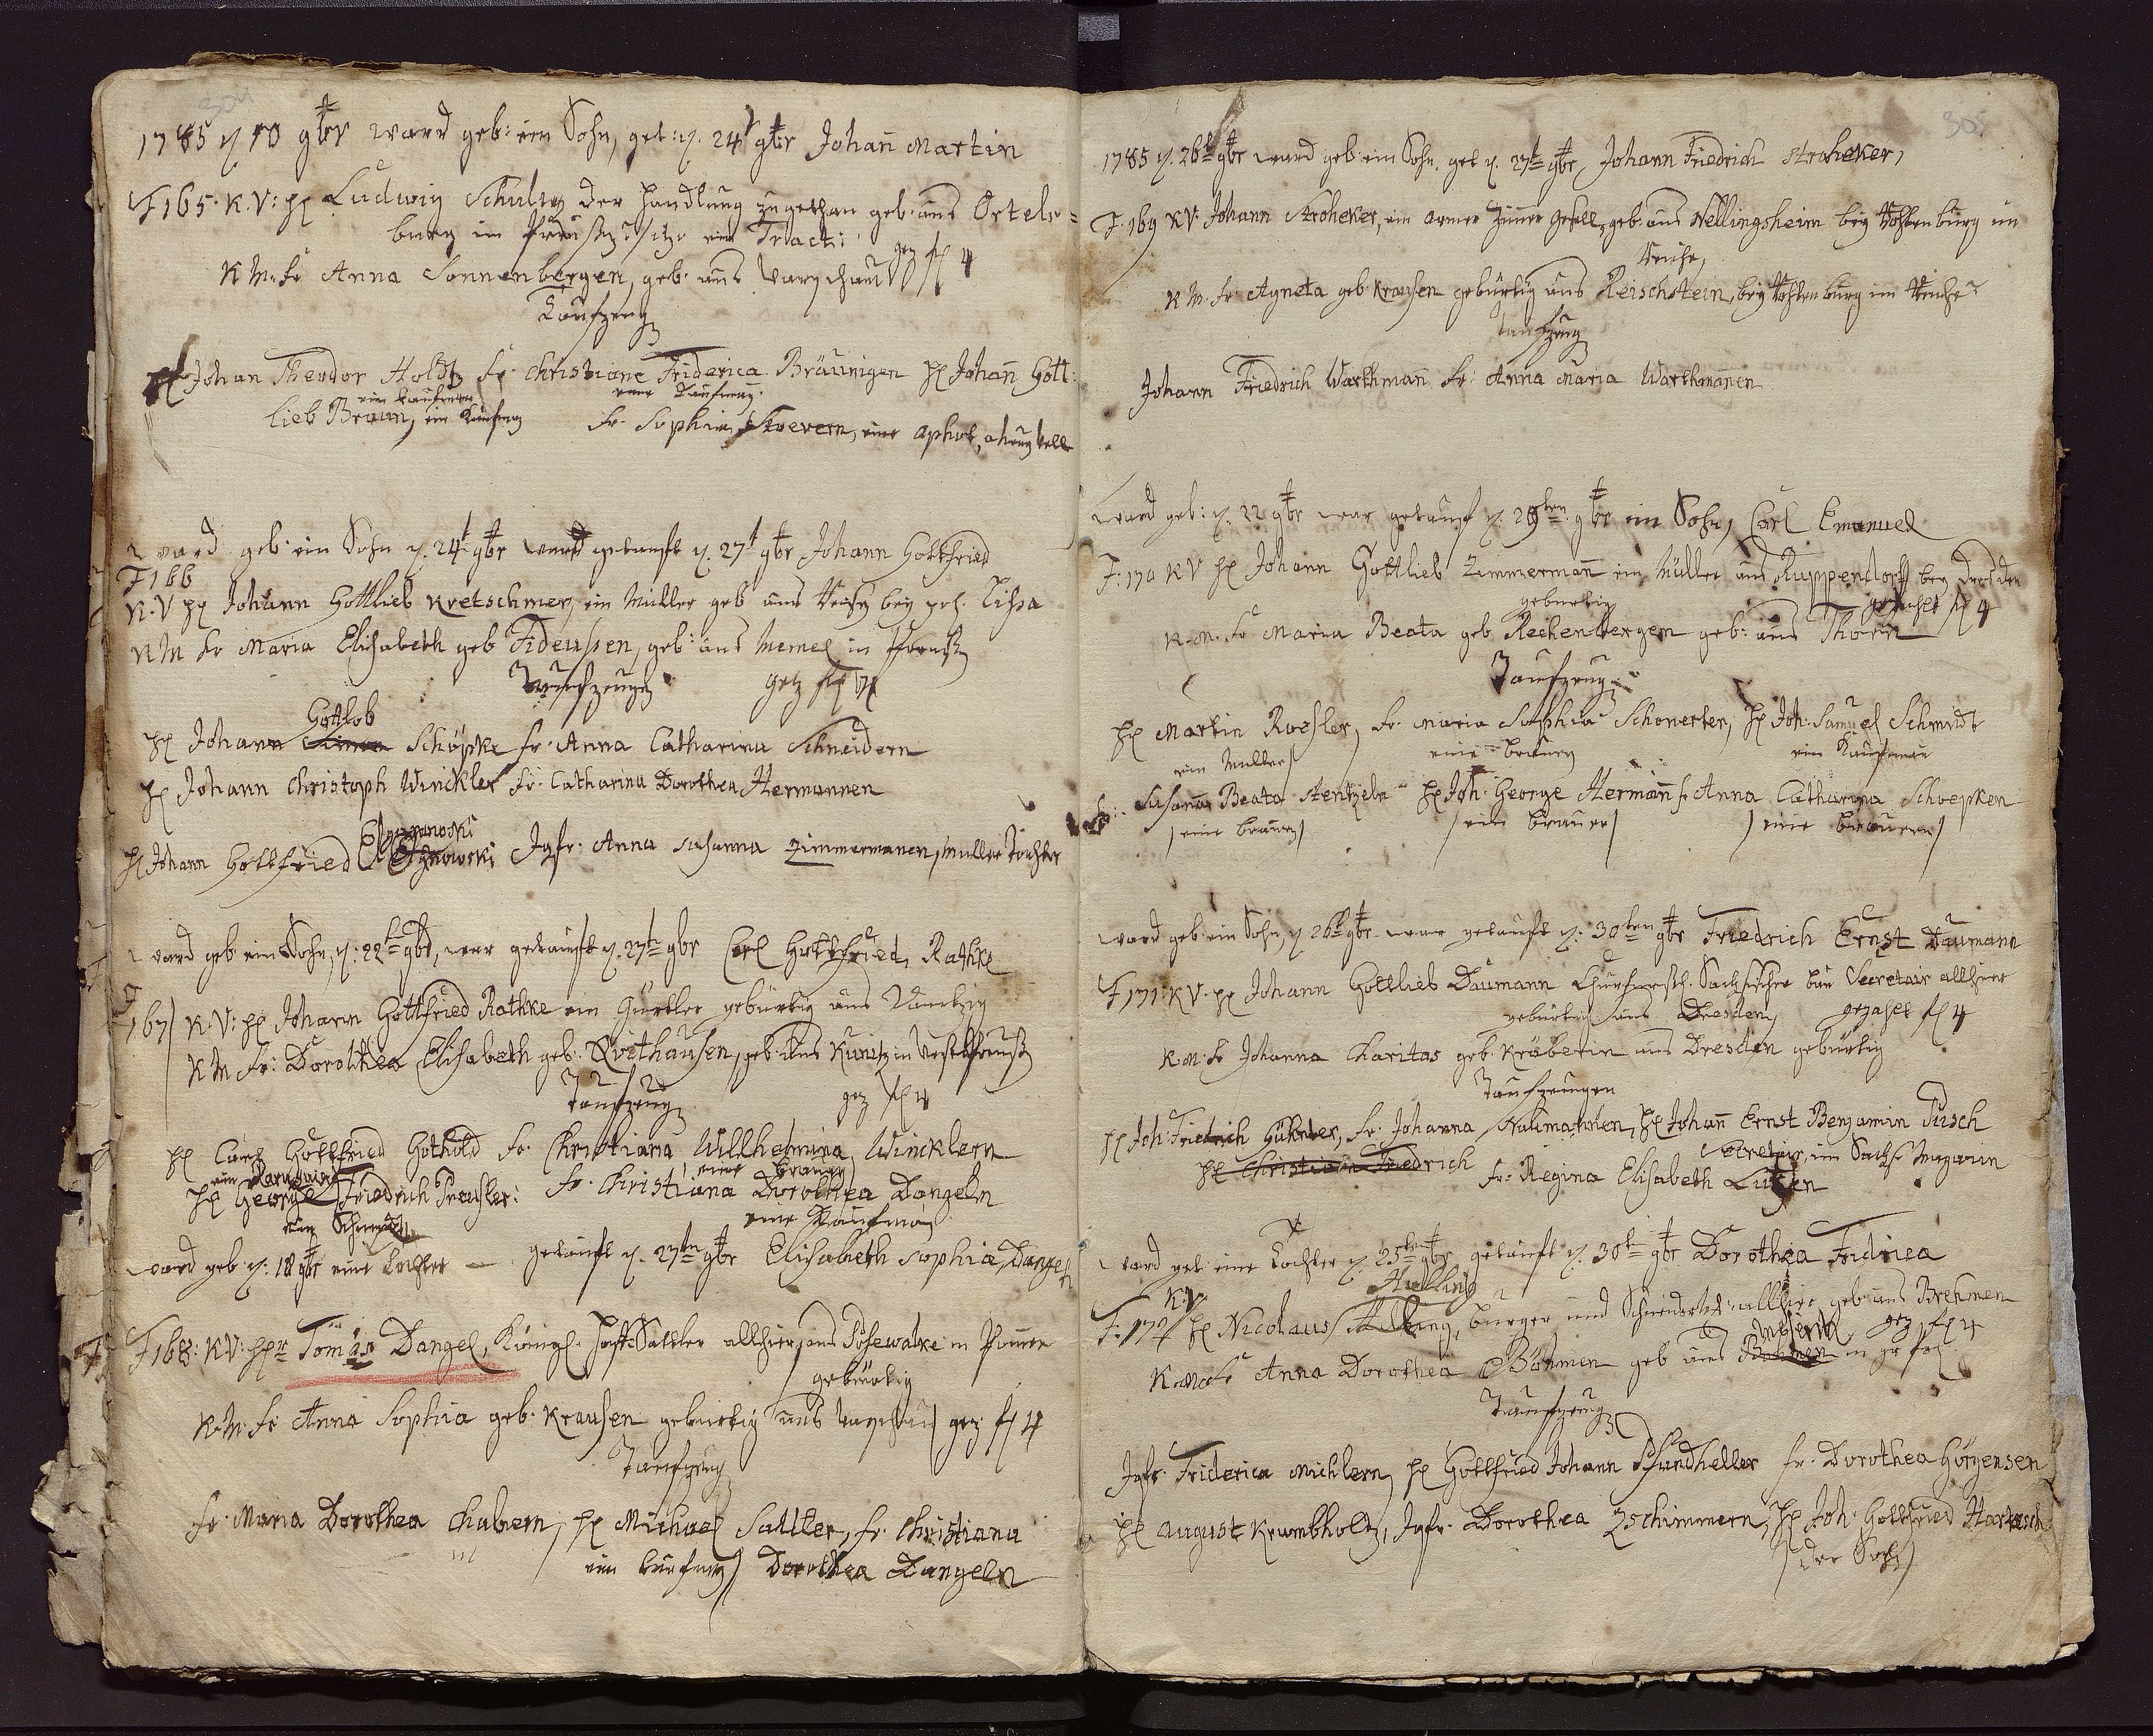 304
1785 d. 10 gbr ward geb: ein Sohn, get: d. 24t gbr Johan̄ Martin
F 165. K. V: H Ludwig Schultz der Handlung zugethan geb: aus Ortels=
burg in Preuß
K M: Fr Anna Sonnenbergen, geb: aus Warschau gez f 4
Taufzeug
H Johan Theodor Holtz Fr. Christiane Friderica Bräunigen H Johan̄ Gott:
ein Kaufman eine Kaufman
lieb Braun, ein Kaufman Fr. Sophia Stoevern, eine
ward geb: ein Sohn d. 24t gbr ward getauft d. 27t gbr Johann Gottfried
F 166
K. V H Johann Gottlieb Kretschmer, ein Müller geb aus bey Lissa
K M Fr Maria Elisabeth geb Fideussen, geb: aus Memel in Preuß
Taufzeugen gez f 4
Gotlob
H Johann Schöpke Fr. Anna Catharina Schneidern
H Johann Christoph Winckler Fr. Catharina Dorothea Hermannen
H Johann Gottfried Jgfr. Anna Susanna Zimmermanen, Muller Tochter
ward geb ein Sohn, d: 22t gbr, war getauft d. 27t gbr Carl Gottfried Rathke
F
167 K. V: H Johann Gottfried Rathke ein Gürtler gebürtig aus Dantzig
K M Fr: Dorothea Elisabeth geb. Qvithausen, geb: aus Kunitz in Westpreuß
Taufzeug gez f 4
H Carl Gottfried Gothold Fr. Christiana Willhelmina Wincklern
eine Brauer
H George Friedrich Preusler: Fr. Christiana Dorothea Dangeln
ein Schmidt eine Kaufman
ward geb d: 18 gbr eine Tochter — getauft d. 27ten gbr Elisabeth Sophia, Dangel
F 168: K V: Hr Tomas Dangel, Königl. Hoff Sattler allhier, aus Posewalke in Pomer
gebürtig
K. M. Fr Anna Sophia geb. Krausen gebürtig aus Warschau gez f 4
Taufzeug
Fr. Maria Dorothea Chabern, H Michael Sattler, Fr. Christiana
ein Kaufman Dorothea Dangeln
305
1785 d. 26t gbr ward geb: ein Sohn. get d. 27t gbr Johann Friedrich Stroheker,
F. 169 K V. Johann Stroheker, ein armer Zimer Gesell, geb: aus Nellingsheim bey Rottenburg im
Reiche,
K M. Fr. Agneta geb. Krausen gebürtig aus Reischstein, bey Rottenburg im Reiche
Taufzeug
Johann Friedrich Warthman̄ Fr. Anna Maria Warthmanen
ward geb: d. 22 gbr war getauf d. 29ten gbr ein Sohn, Carl Emanuel
F: 170 K V H Johann Gottlieb Zimmerman̄ ein Müller aus Ruppendorff bey Dresden
gebürtig gezahlt f 4
K. M. Fr Maria Beata geb. Rechenbergen geb: aus Thorn
Taufzeug
H Martin Roesler, Fr. Maria Sophia Schonerten, H Joh: Samuel Schmidt
ein Muller eine Brauer ein Kaufman
Fr: Susanna Beata Stentzeln H Joh: George Herman̄ Fr Anna Catharina Schoepken
eine Brauer ein Brauer eine Brauern
ward geb ein Sohn, d 26t gbr war getauft d: 30ten gbr Friedrich Ernst Daumann
F 171: K V. H Johann Gottlieb Daumann Churfürstl. Sächsischer Bau Secretair allhier
gebürtig aus Dresden, gezahlt f 4
K. M. Fr Johanna Charitas geb. Kröberin aus Dresden gebürtig
Taufzeugen
H Joh: Friedrich Güthler, Fr. Johanna Naumannen, H Johan̄ Ernst Benjamin Pusch
Secretair, im Sächs. Magazin
H Christian Friedrich Fr. Regina Elisabeth Lutzen
ward geb. eine Tochter d. 25ten gbr getauft d. 30t gbr Dorothea Fridrica
K V Helling
F. 172 H Nicolaus Bürger und Schneider allhier geb aus Brehmen
gez f 4
K. M. Fr Anna Dorothea Böhmen geb aus in
Taufzeug
Jgfr. Friderica Michlern, H Gottfried Johann Pfundheller Fr. Dorothea Görgensen
H August Krumbholtz, Jgfr. Dorothea Zschimmern, H Joh: Gottfried Hartesch
der Sohn